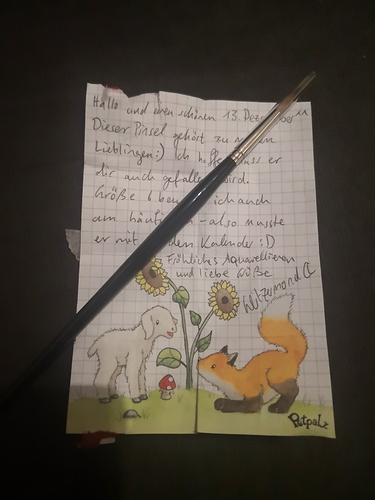 Hallo und einen schönen 13. Dezember
Dieser Pinsel gehört zu
Lieblingen:) Ich dass er
dir auch gefallen wird.
Größe 6 ich auch
am - also musste
er mit den Kalender :D
Fröhliches Aquarellieren
und liebe Grüße
Petpalz